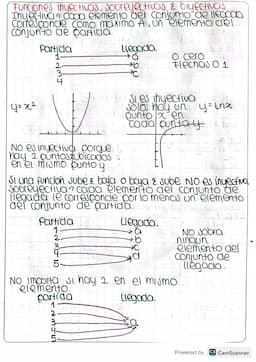 Funciones inyectivas, sobreyectivas & biyectivas
Inyectiva → cada elemento del conjunto de llegada
corresponde como máximo A, un elemento del
conjunto de partida.
Partida llegada.
1 a
2 b
3 c
4
O cero
flechas o 1
y=x²
Si es inyectiva
solo hay un
punto x en
cada punto y
y=lnx
No es inyectiva porque
hay 2 puntos ubicados
en el mismo punto y
Si una función sube & baja o baja & sube NO es inyectiva
Sobreyectiva → cada elemento del conjunto de
llegada le corresponde por lo menos un elemento
del conjunto de partida.
Partida llegada.
1 a
2 b
3 c
4 d
5
No sobra
ningun
elemento del
conjunto de
llegada.
No importa si hay 2 en el mismo
elemento.
partida llegada.
1
2
3
4
5
a
Powered by CS CamScanner